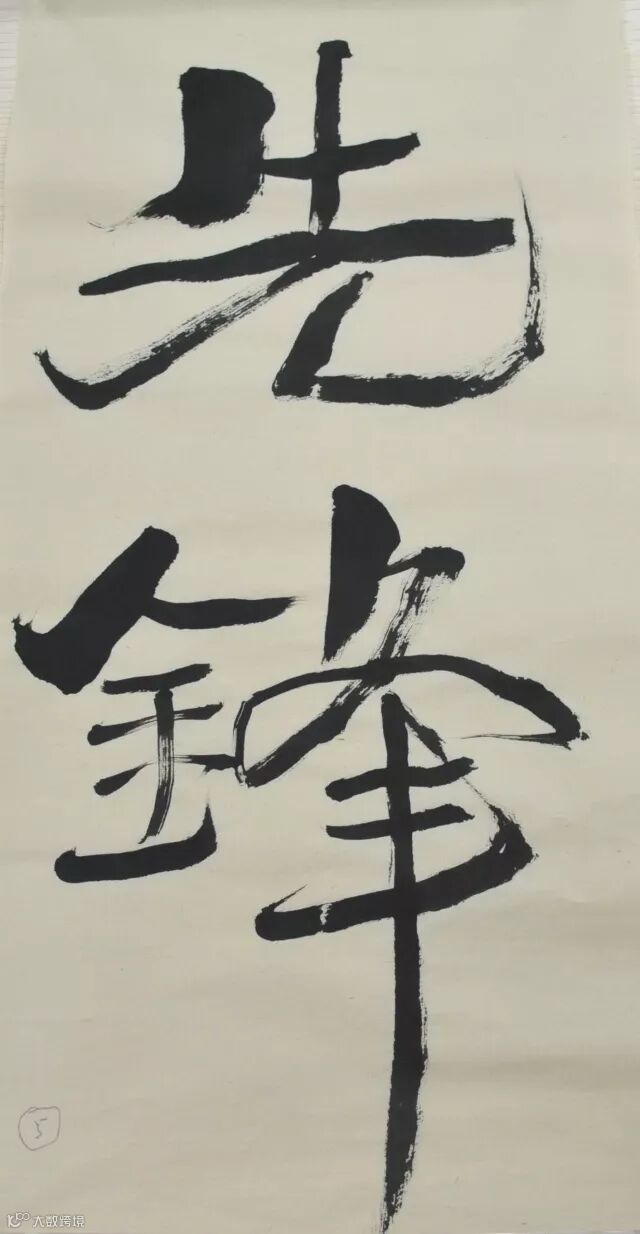 先
鋒
5
大数跨境